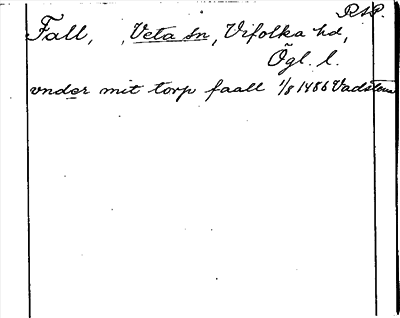 RAP.
Fall, Veta sn, Vifolka hd,
Ögl. l.
vnder mit torp faall 1/8 1486 Vadstena